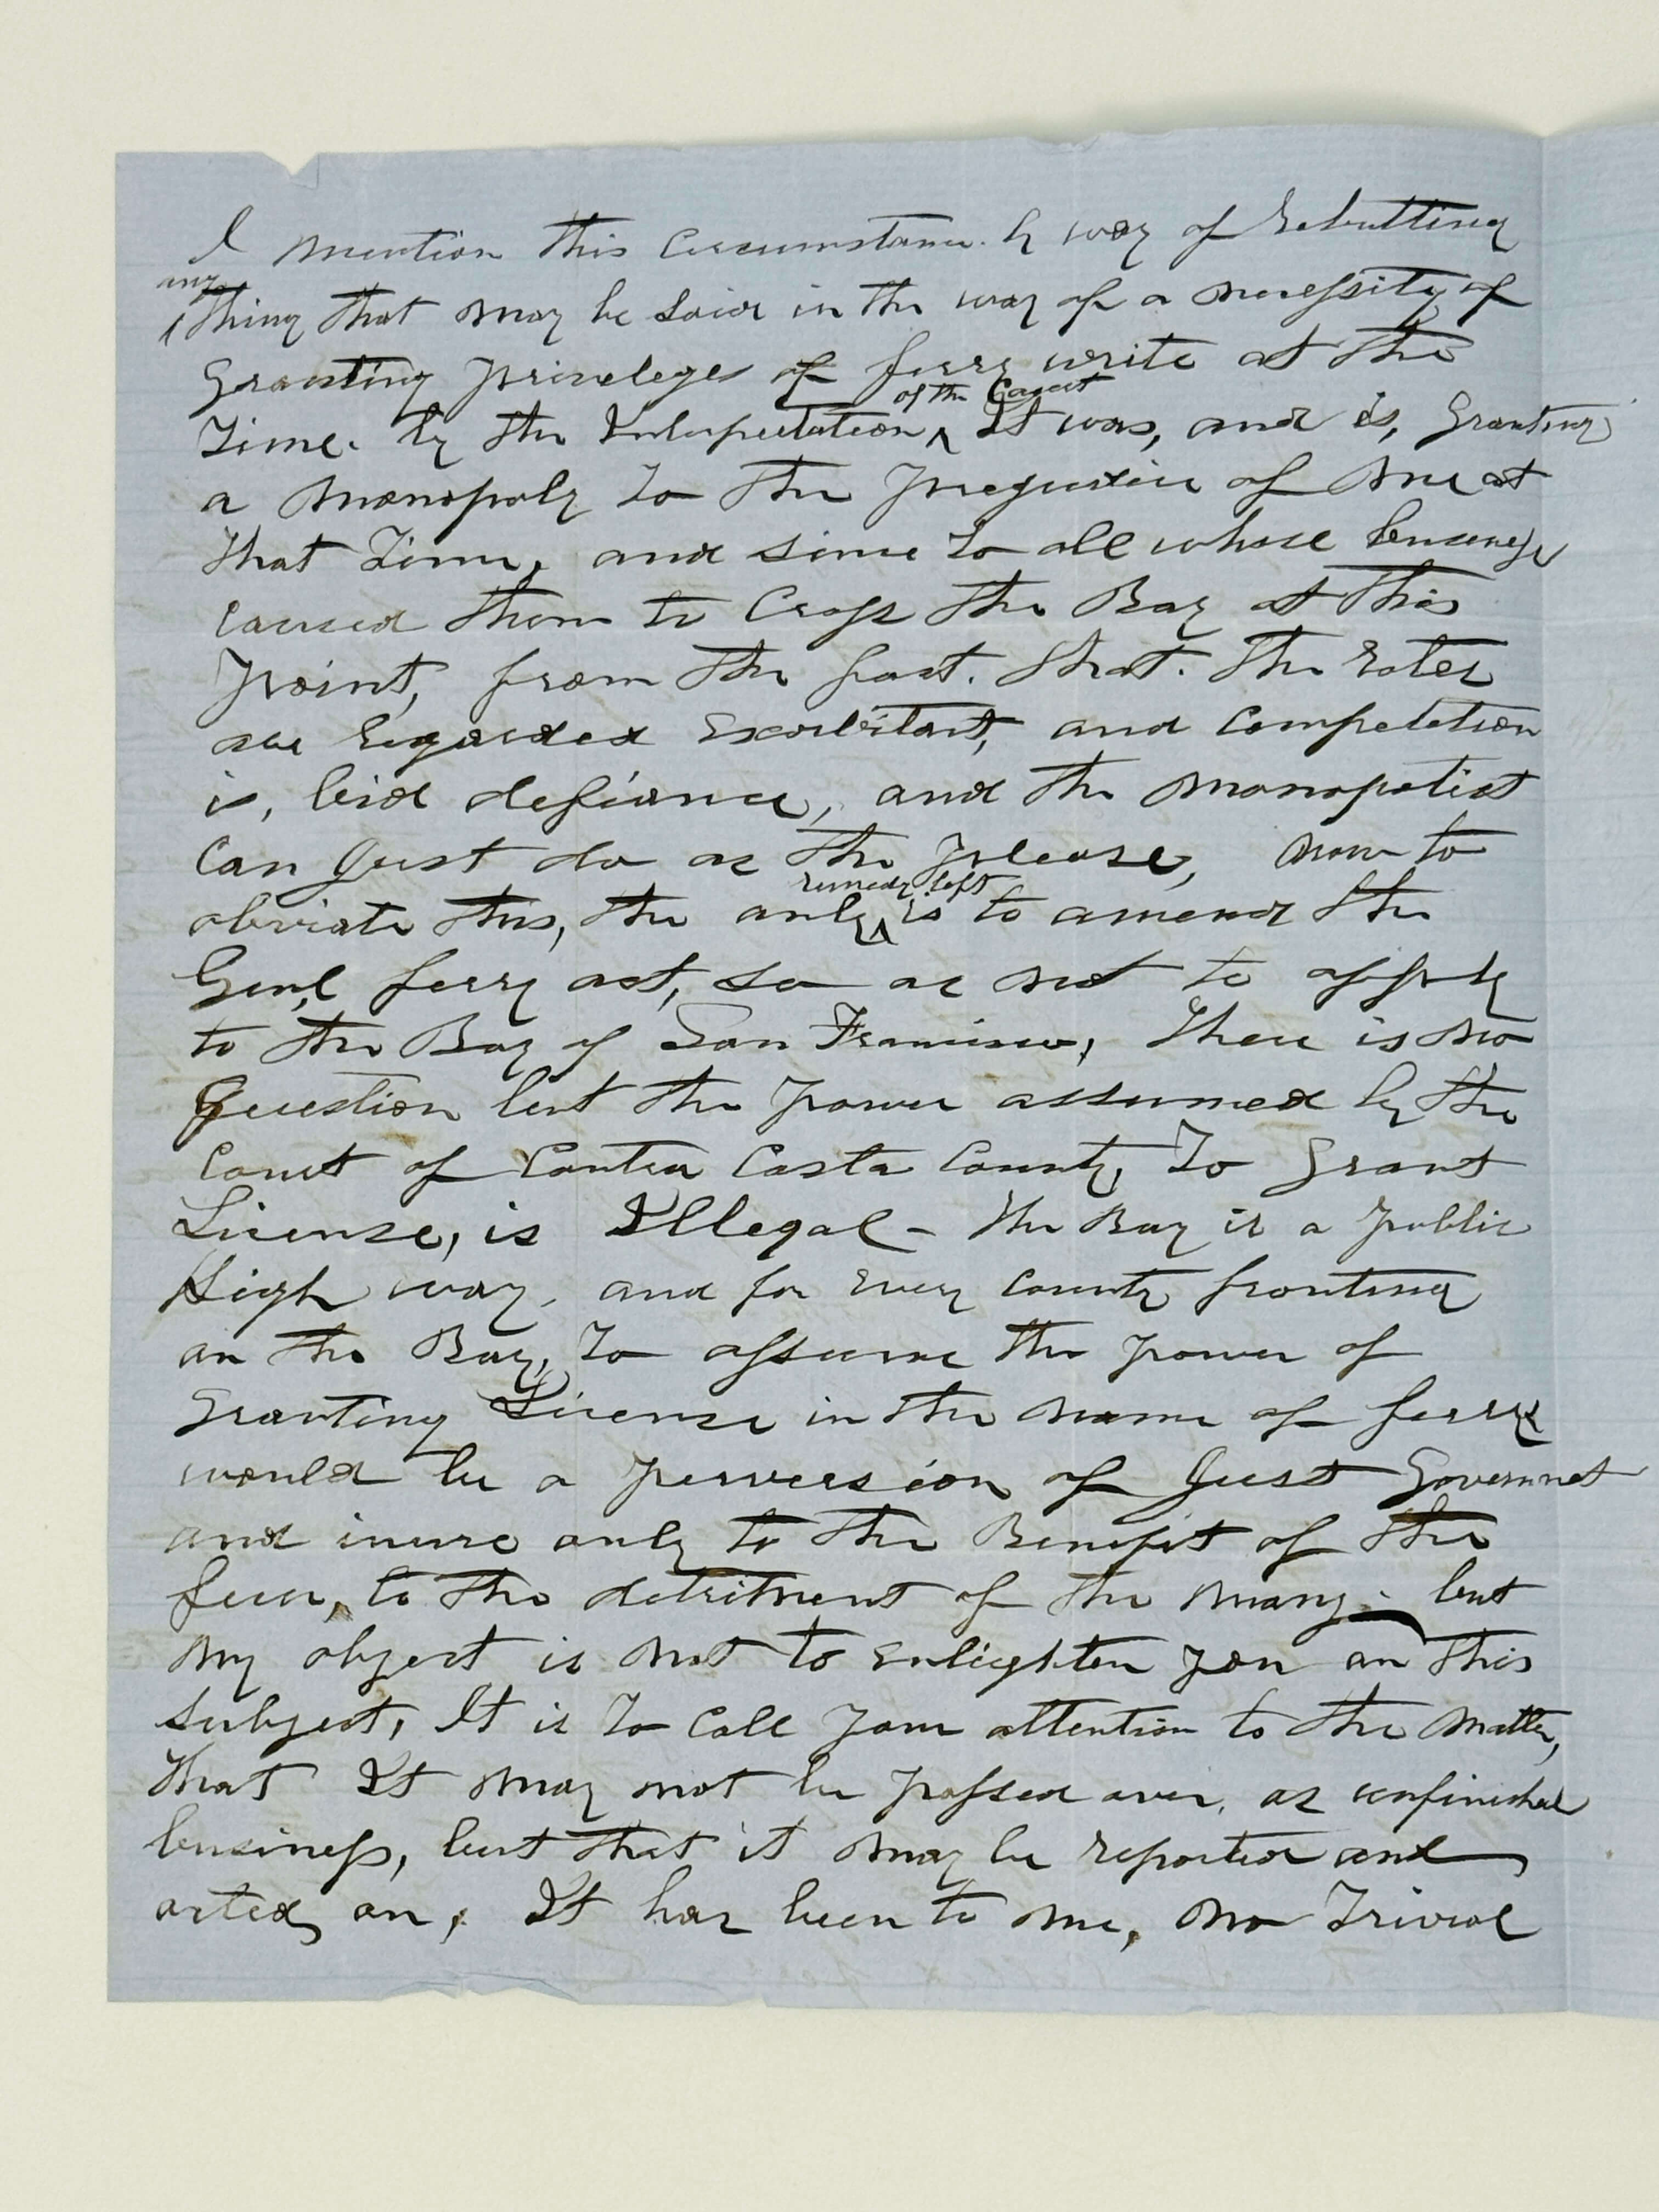 I mention this Circumstance. by way of Rebutting
any
thing that may be said in the way of a necessity of
Granting priveleges of ferry write at the
of the Court
Time. by the Interpretation It was, and is, Granting
a monopoly to the prejudice of me at
that Time, and since to all whose buseness
caused them to Cross the Bay at this
point, from the fact. that. the rates
are Regarded Exorbitant, and Competetion
is, bid defiance, and the monopolist
Can Just do as the please, now to
remedy left
obviate this, the only is to amend the
Genl ferry act, so as not to apply
to the Bay of San Francisco, there is no
Question but the power assumed by the
Court of Contra Costa County, To Grant
License, is Illegal - The Bay is a public
High way, and for Every County fronting
on the Bay, To assume the power of
Granting License in the name of ferry
would be a perversion of Just Governmet
and inure only to the Benefit of the
few, to the detriment of the many - but
my object is not to Enlighten you on this
subject, It is To Call your attention to the matter,
that It may not be passed over, as unfinished
business, but that it may be reported and
acted on, It has been to me, no Trivial